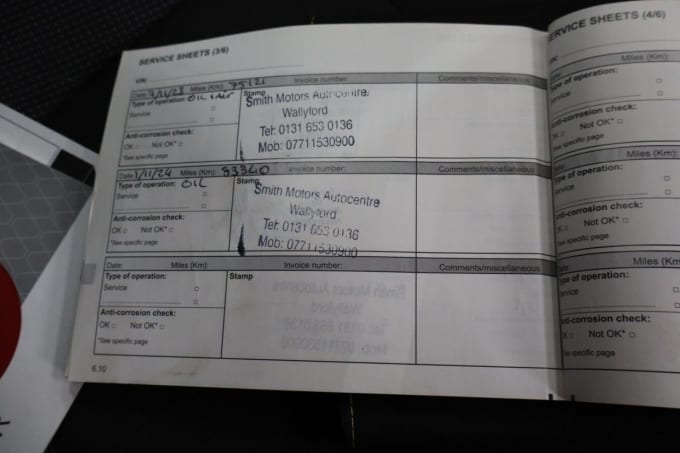 SERVICE SHEETS (3/6)
VIN:
Date: Miles (Km): 75121 Invoice number: Comments/miscellaneous
Type of operation: OIL + AIR Stamp
Service
Smith Motors Autocentre
Wallyford
Tel: 0131 653 0136
Mob: 07711530900
Anti-corrosion check:
OK □ Not OK* □
*See specific page
Date: 1/11/24 Miles (Km): 83340 Invoice number: Comments/miscellaneous
Type of operation: OIL Stamp
Service
Smith Motors Autocentre
Wallyford
Tel: 0131 653 0136
Mob: 07711530900
Anti-corrosion check:
OK □ Not OK* □
*See specific page
Date: Miles (Km): Invoice number: Comments/miscellaneous
Type of operation: Stamp
Service
Anti-corrosion check:
OK □ Not OK* □
*See specific page
6.10
SERVICE SHEETS (4/6)
VIN:
Date: Miles (Km):
Type of operation:
Service
Anti-corrosion check:
OK □ Not OK* □
*See specific page
Date: Miles (Km):
Type of operation:
Service
Anti-corrosion check:
OK □ Not OK* □
*See specific page
Date: Miles (Km):
Type of operation:
Service
Anti-corrosion check:
OK □ Not OK* □
*See specific page